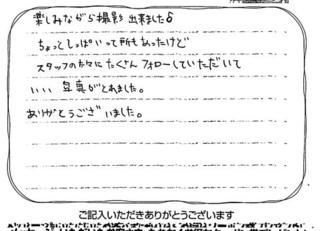 楽しみながら撮影出来ました♪
ちょっとしっぱいって所もあったけど
スタッフの方々にたくさんフォローしていただいて
いい写真がとれました。
ありがとうございました。
ご記入いただきありがとうございます